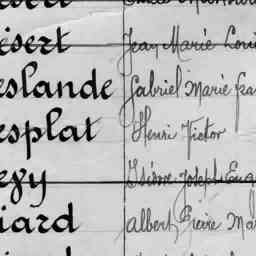 ésert Jean Marie Loui
eslande Gabriel Marie fra
esplat Henri Victor
evy Isidore Joseph Eug
iard Albert Pierre Mar